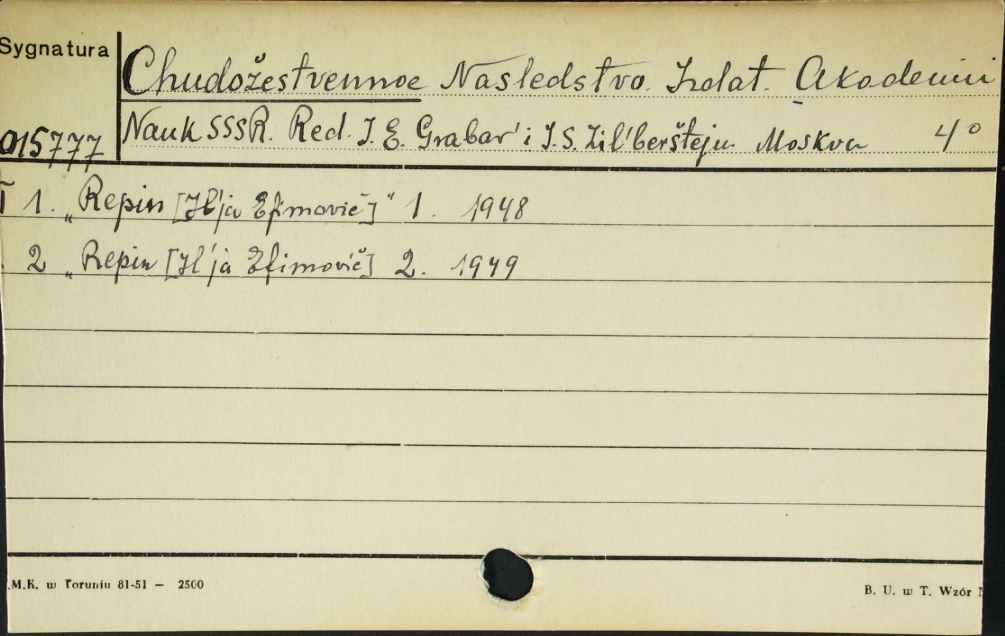 Sygnatura
Chudožestvennoe Nasledstvo. Izdat. Akademii
015777
Nauk SSSR. Red. I. E. Grabar' i I. S. Zil'berštejn. Moskva 4°
T 1. „Repin [Il'ja Efimovič]" 1. 1948
2 „Repin [Il'ja Efimovič] 2. 1949
M.K. w Toruniu 81-51 — 2500
B. U. w T. Wzór